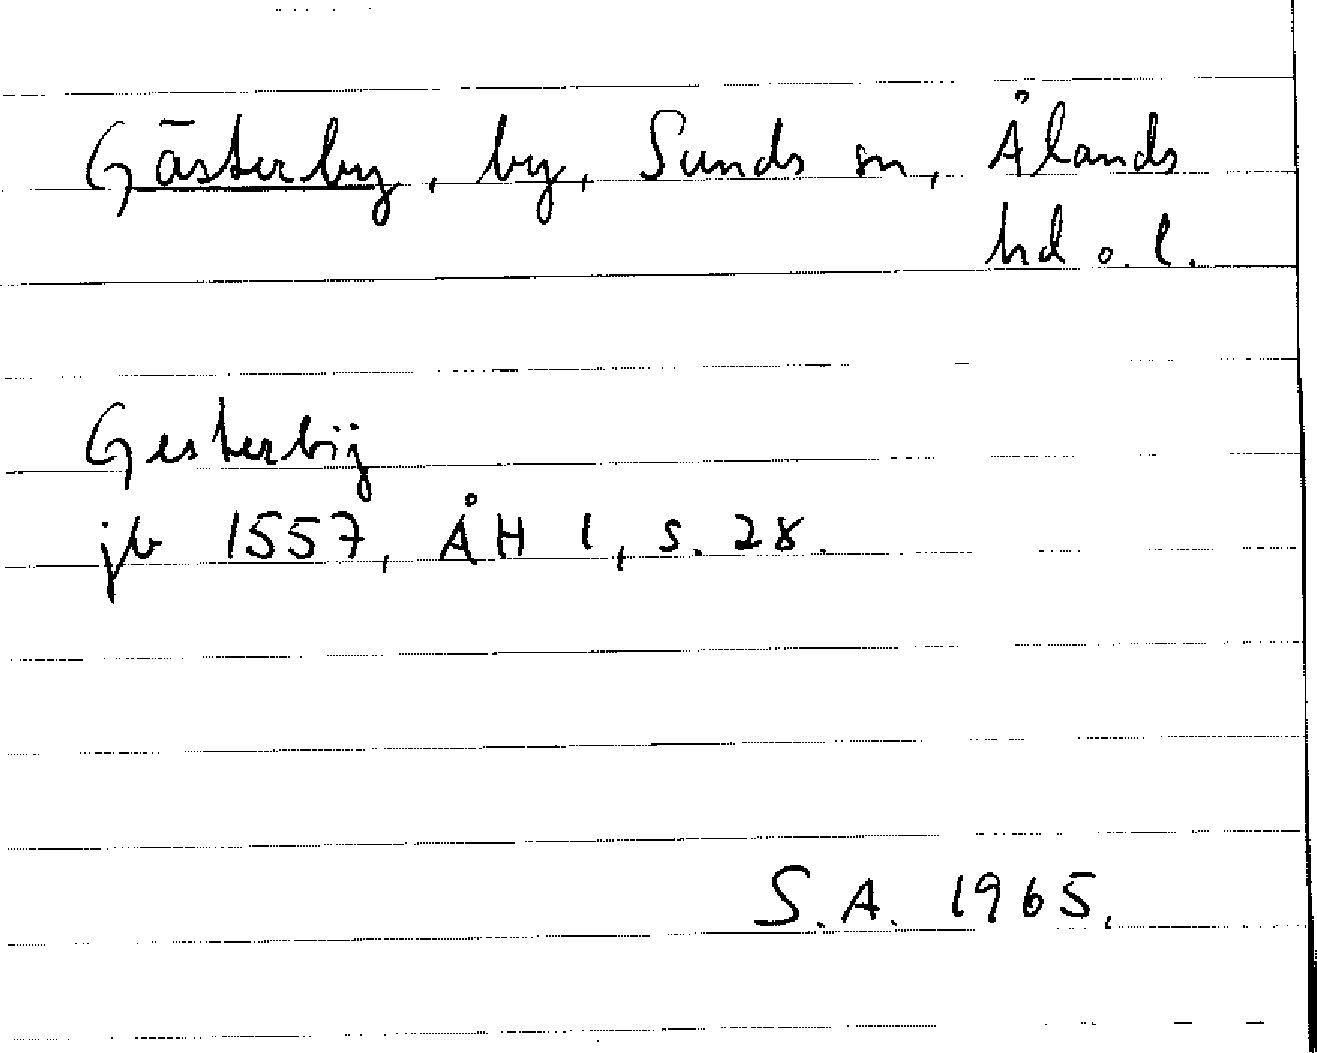 Gästerby, by, Sunds sn, Ålands
hd o. l.
Gesterbÿ
jb 1557, ÅH 1, s. 28.
S.A. 1965.